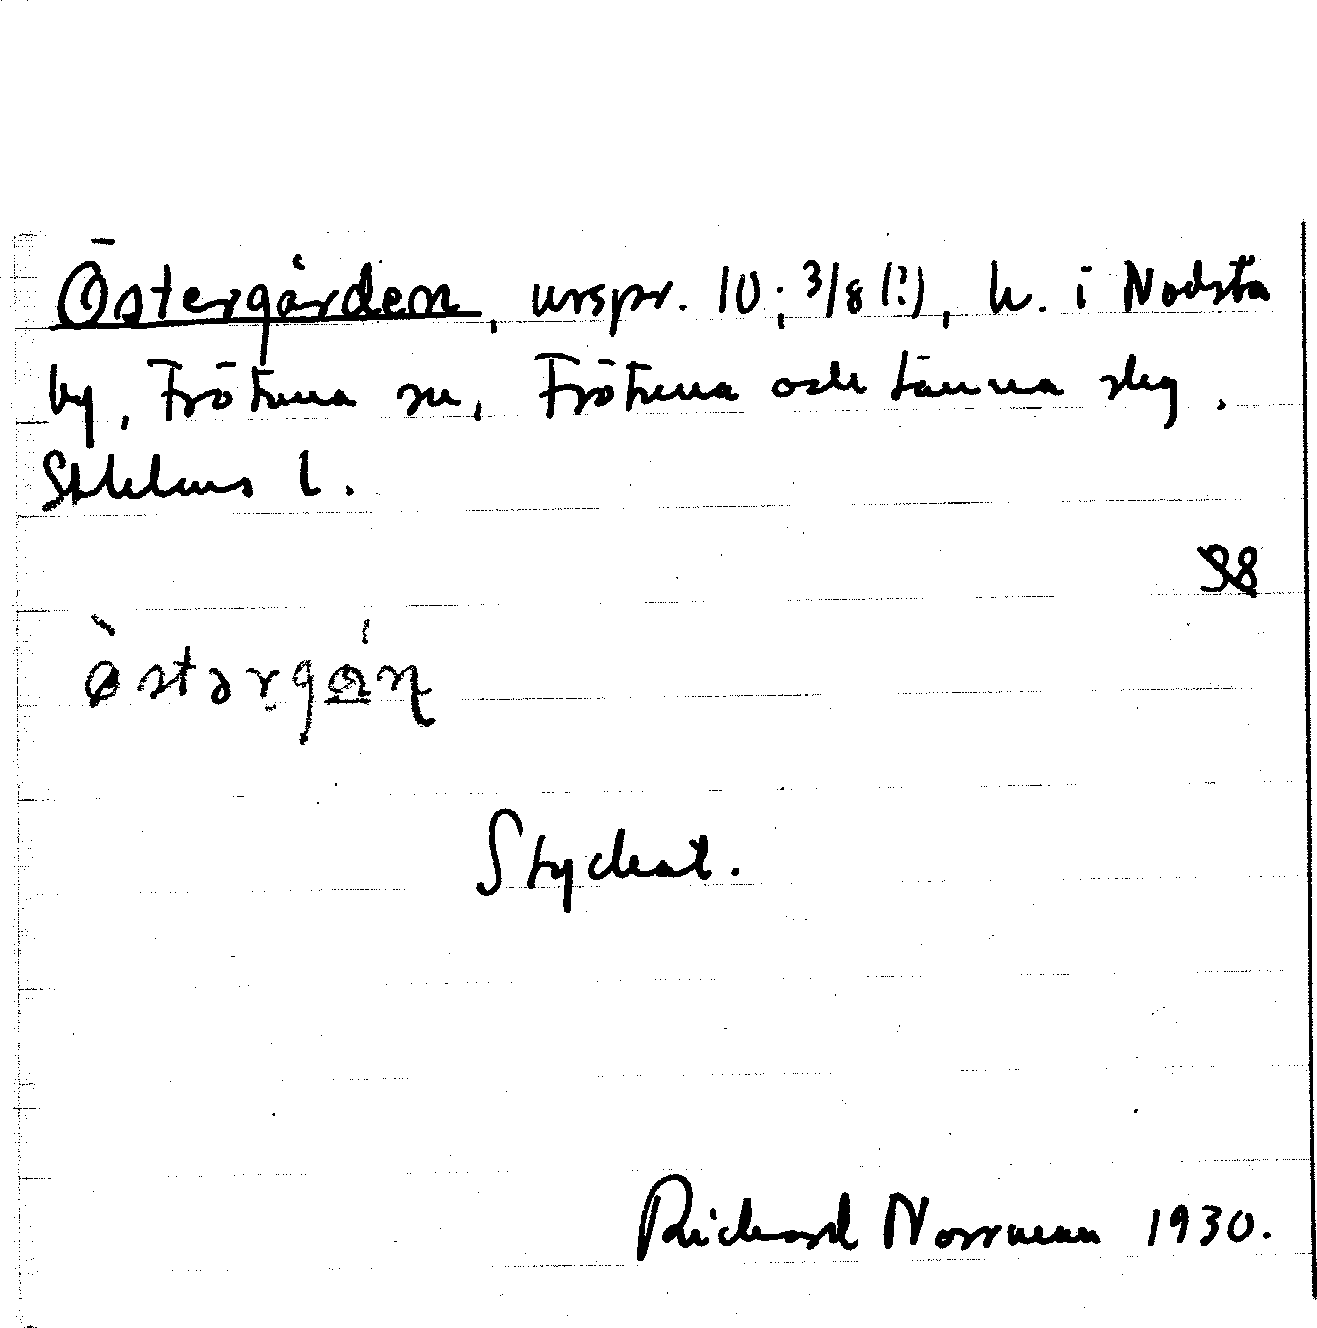 Östergården, urspr. 10; 3/8 (?), h. i Nodsta
by, Frötuna sn, Frötuna och Länna slg,
Sthlms l.
98
ø̀stərgɑ́ɳ
Styckat.
Richard Norrman 1930.